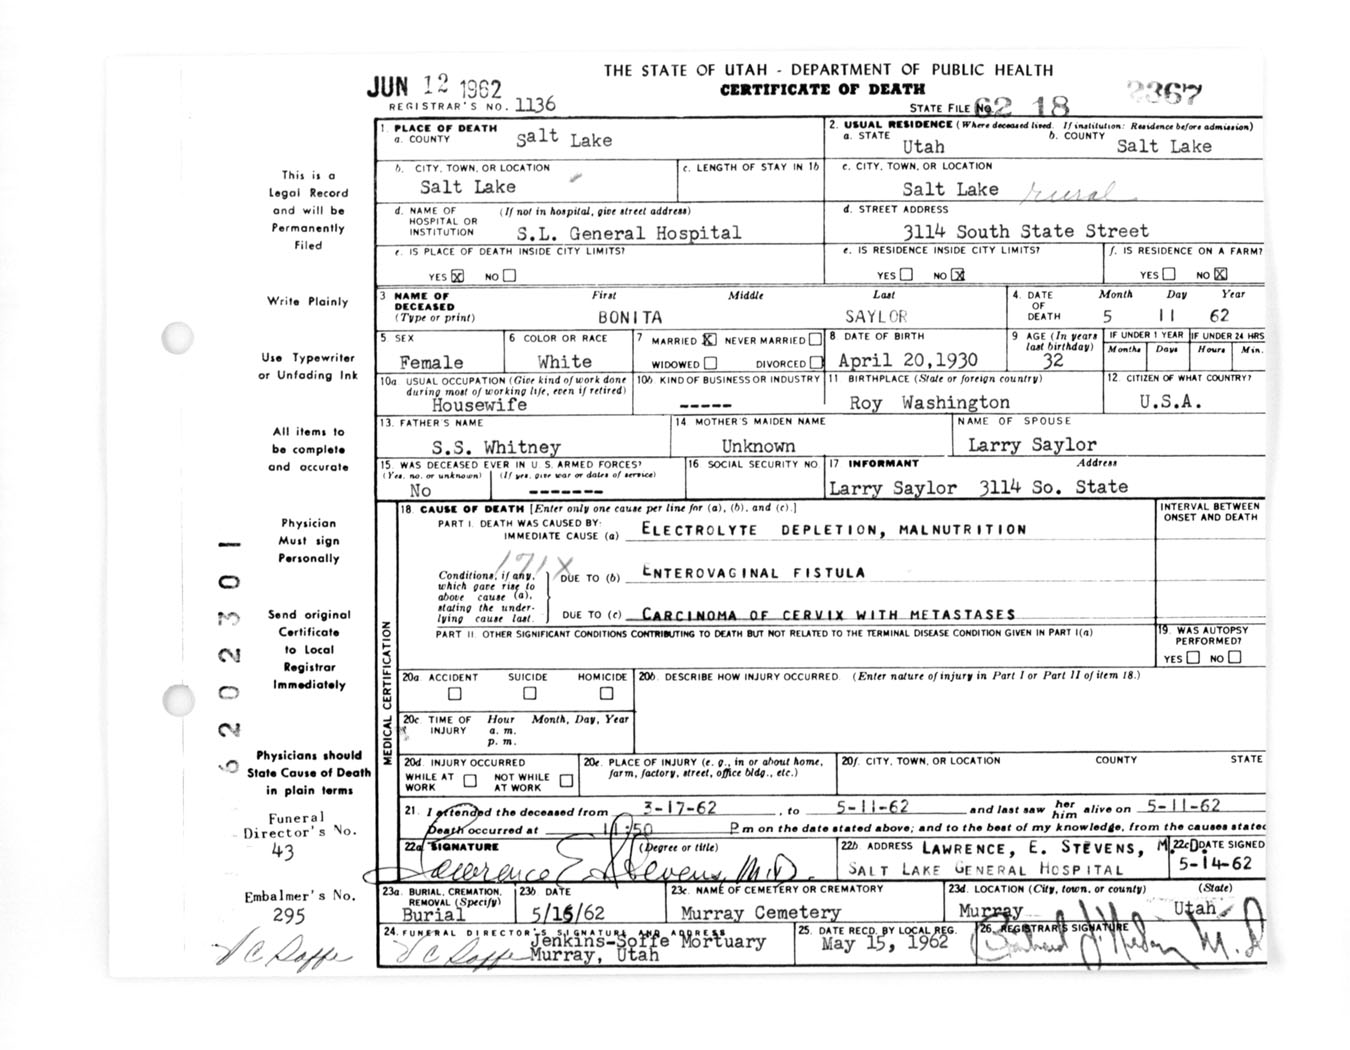 THE STATE OF UTAH - DEPARTMENT OF PUBLIC HEALTH
JUN 12 1962
CERTIFICATE OF DEATH
2367
REGISTRAR'S NO. 1136
STATE FILE No. 62 18
1. PLACE OF DEATH
a. COUNTY Salt Lake
2. USUAL RESIDENCE (Where deceased lived. If institution: Residence before admission)
a. STATE Utah b. COUNTY Salt Lake
b. CITY, TOWN, OR LOCATION
Salt Lake
c. LENGTH OF STAY IN 1b
c. CITY, TOWN, OR LOCATION
Salt Lake rural
d. NAME OF HOSPITAL OR INSTITUTION (If not in hospital, give street address)
S.L. General Hospital
d. STREET ADDRESS
3114 South State Street
e. IS PLACE OF DEATH INSIDE CITY LIMITS?
YES X NO
e. IS RESIDENCE INSIDE CITY LIMITS?
YES NO X
f. IS RESIDENCE ON A FARM?
YES NO X
3 NAME OF DECEASED (Type or print)
First Middle Last
BONITA SAYLOR
4. DATE OF DEATH
Month Day Year
5 11 62
5. SEX
Female
6 COLOR OR RACE
White
7 MARRIED X NEVER MARRIED
WIDOWED DIVORCED
8 DATE OF BIRTH
April 20,1930
9 AGE (In years last birthday)
32
IF UNDER 1 YEAR
Months Days
IF UNDER 24 HRS
Hours Min.
10a USUAL OCCUPATION (Give kind of work done during most of working life, even if retired)
Housewife
10b. KIND OF BUSINESS OR INDUSTRY
-----
11 BIRTHPLACE (State or foreign country)
Roy Washington
12. CITIZEN OF WHAT COUNTRY?
U.S.A.
13. FATHER'S NAME
S.S. Whitney
14 MOTHER'S MAIDEN NAME
Unknown
NAME OF SPOUSE
Larry Saylor
15. WAS DECEASED EVER IN U. S. ARMED FORCES?
(Yes, no, or unknown) (If yes, give war or dates of service)
No -------
16 SOCIAL SECURITY NO.
17 INFORMANT Address
Larry Saylor 3114 So. State
MEDICAL CERTIFICATION
18. CAUSE OF DEATH [Enter only one cause per line for (a), (b), and (c).]
INTERVAL BETWEEN ONSET AND DEATH
PART I. DEATH WAS CAUSED BY:
IMMEDIATE CAUSE (a) ELECTROLYTE DEPLETION, MALNUTRITION
171X
Conditions, if any, which gave rise to above cause (a), stating the underlying cause last.
DUE TO (b) ENTEROVAGINAL FISTULA
DUE TO (c) CARCINOMA OF CERVIX WITH METASTASES
PART II. OTHER SIGNIFICANT CONDITIONS CONTRIBUTING TO DEATH BUT NOT RELATED TO THE TERMINAL DISEASE CONDITION GIVEN IN PART I(a)
19. WAS AUTOPSY PERFORMED?
YES NO
20a. ACCIDENT SUICIDE HOMICIDE
20b. DESCRIBE HOW INJURY OCCURRED. (Enter nature of injury in Part I or Part II of item 18.)
20c. TIME OF INJURY Hour Month, Day, Year
a. m.
p. m.
20d. INJURY OCCURRED
WHILE AT WORK NOT WHILE AT WORK
20e. PLACE OF INJURY (e. g., in or about home, farm, factory, street, office bldg., etc.)
20f. CITY, TOWN, OR LOCATION COUNTY STATE
21. I attended the deceased from 3-17-62, to 5-11-62 and last saw her him alive on 5-11-62
Death occurred at 11:50 P m on the date stated above; and to the best of my knowledge, from the causes stated
22a. SIGNATURE (Degree or title)
Lawrence E. Stevens, M.D.
22b. ADDRESS LAWRENCE, E. STEVENS, M.D.
SALT LAKE GENERAL HOSPITAL
22c. DATE SIGNED
5-14-62
23a. BURIAL, CREMATION, REMOVAL (Specify)
Burial
23b. DATE
5/15/62
23c. NAME OF CEMETERY OR CREMATORY
Murray Cemetery
23d. LOCATION (City, town, or county) (State)
Murray Utah
24. FUNERAL DIRECTOR'S SIGNATURE AND ADDRESS
Jenkins-Soffe Mortuary
Murray, Utah
25. DATE RECD. BY LOCAL REG.
May 15, 1962
26. REGISTRAR'S SIGNATURE
M.D.
This is a
Legal Record
and will be
Permanently
Filed
Write Plainly
Use Typewriter
or Unfading Ink
All items to
be complete
and accurate
Physician
Must sign
Personally
Send original
Certificate
to Local
Registrar
Immediately
Physicians should
State Cause of Death
in plain terms
Funeral
Director's No.
43
Embalmer's No.
295
62020230 1